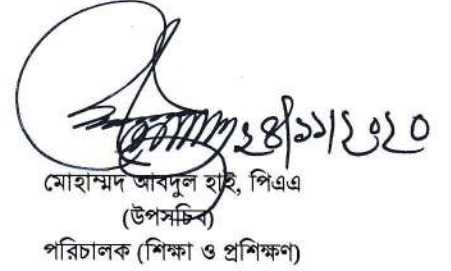 ২৪/১১/২০২০
মোহাম্মদ আবদুল হাই, পিএএ
(উপসচিব)
পরিচালক (শিক্ষা ও প্রশিক্ষণ)